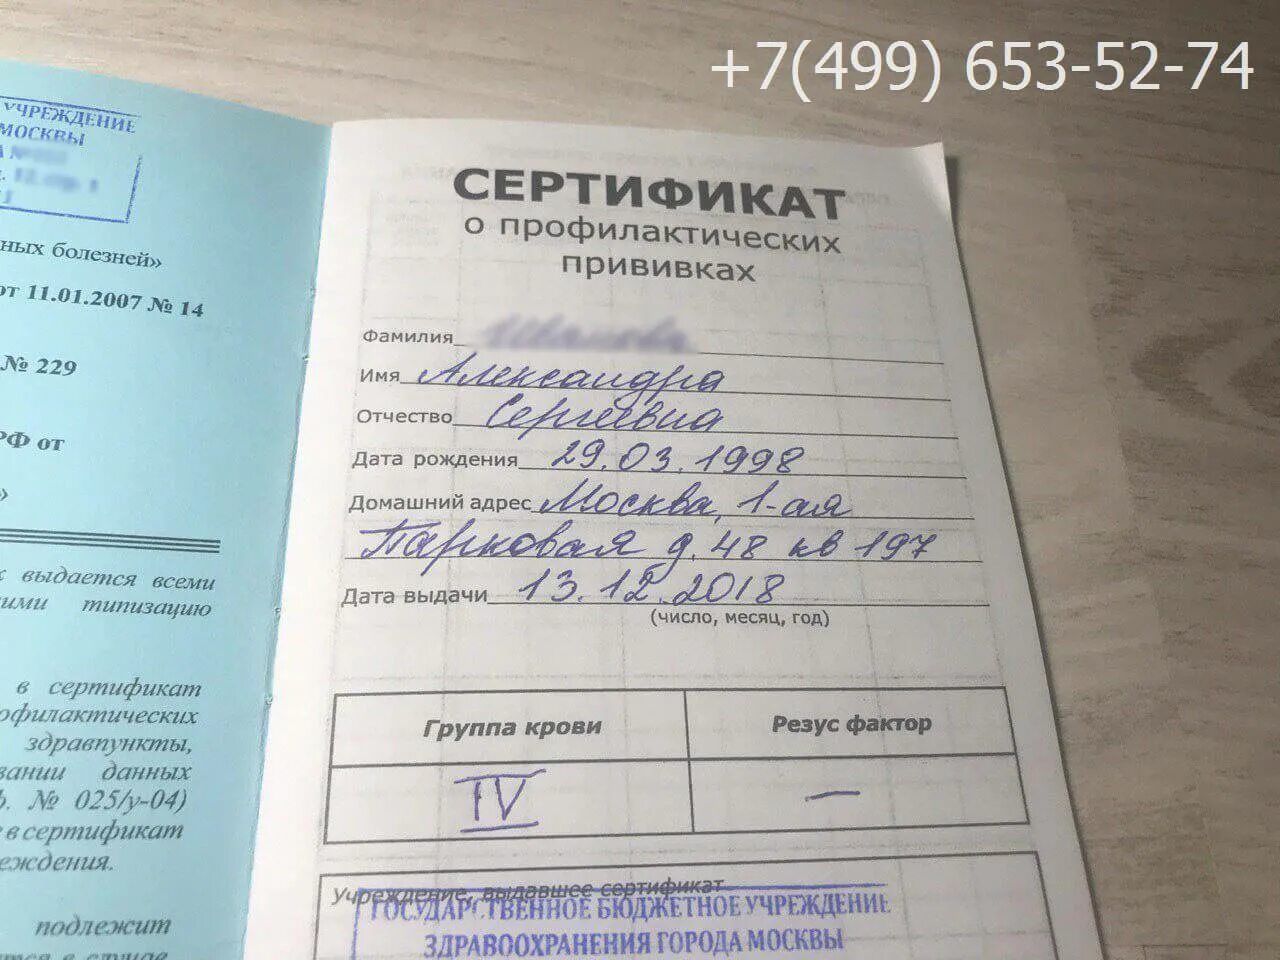 +7(499) 653-52-74
УЧРЕЖДЕНИЕ
МОСКВЫ
ных болезней»
от 11.01.2007 № 14
№ 229
РФ от
»
к выдается всеми
ими типизацию
в сертификат
офилактических
здравпункты,
вании данных
ф. № 025/у-04)
в сертификат
еждения.
подлежит
тся в случае
СЕРТИФИКАТ
о профилактических
прививках
Фамилия
Имя Александра
Отчество Сергеевна
Дата рождения 29.03.1998
Домашний адрес Москва, 1-ая
Парковая д. 48 кв 197
Дата выдачи 13.12.2018
(число, месяц, год)
Группа крови Резус фактор
IV —
Учреждение, выдавшее сертификат
ГОСУДАРСТВЕННОЕ БЮДЖЕТНОЕ УЧРЕЖДЕНИЕ
ЗДРАВООХРАНЕНИЯ ГОРОДА МОСКВЫ